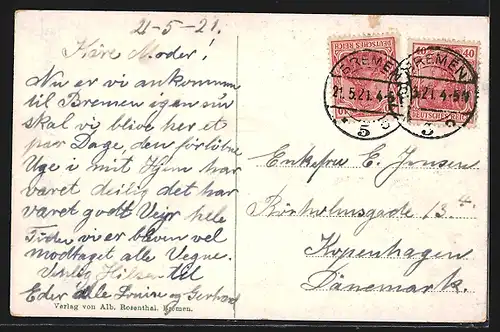 21-5-21.
Kære Moder!
Nu er vi ankommen
til Bremen igen nu
skal vi blive her et
par Dage, den forløbne
Uge i mit Hjem har
været deilig det har
været godt Vejr hele
Tiden vi er bleven vel
modtaget alle Vegne.
Venlig Hilsen til
Eder alle Louise og Gerhard
Verlag von Alb. Rosenthal, Bremen.
DEUTSCHES REICH
40 40
DEUTSCHES REICH
BREMEN
21.5.21. 4-5
5
BREMEN
5.21. 4-5
5
Enkefru E. Jensen
13.4.
Kopenhagen
Dänemark.